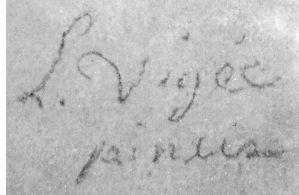 L. Vigée
pinxit